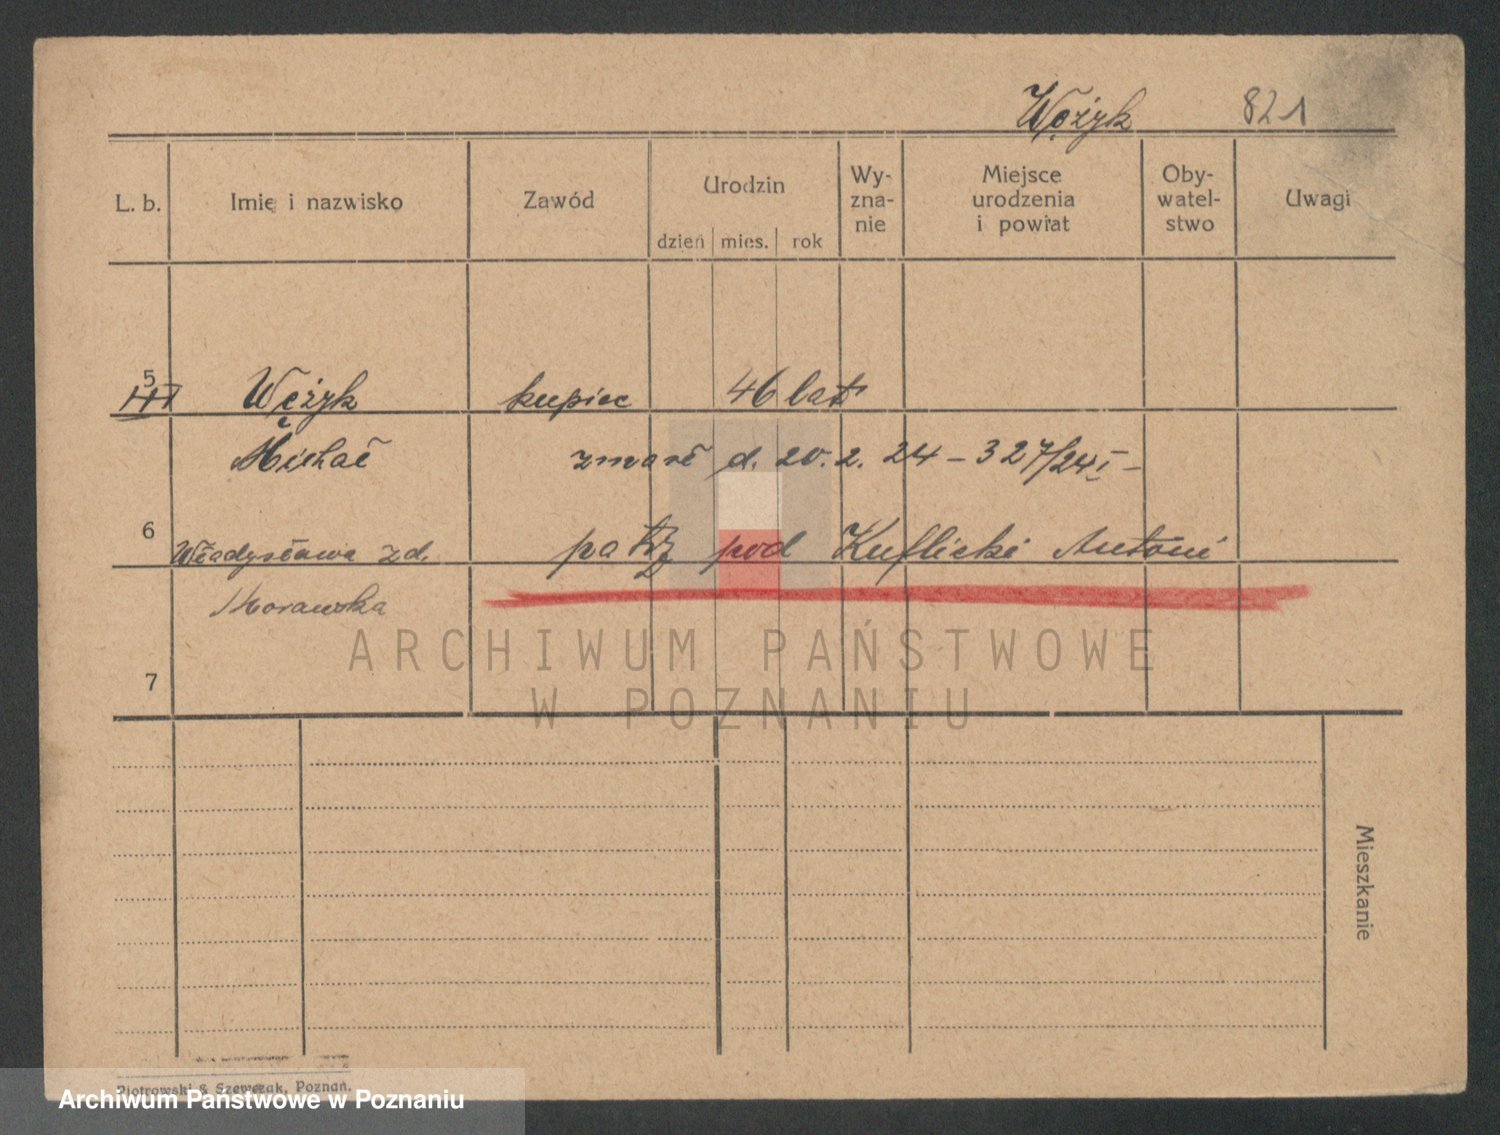 Wężyk 821
L. b. Imię i nazwisko Zawód Urodzin dzień mies. rok Wy-zna-nie Miejsce urodzenia i powiat Oby-watel-stwo Uwagi
5
Wężyk kupiec 46 lat
Michał zmarł d. 20. 2. 24 – 327/24 I –
6
Władysława zd. patrz pod Kuflicki Antoni
Morawska
ARCHIWUM PAŃSTWOWE
W POZNANIU
7
Mieszkanie
Piotrowski & Szewczak, Poznań.
Archiwum Państwowe w Poznaniu